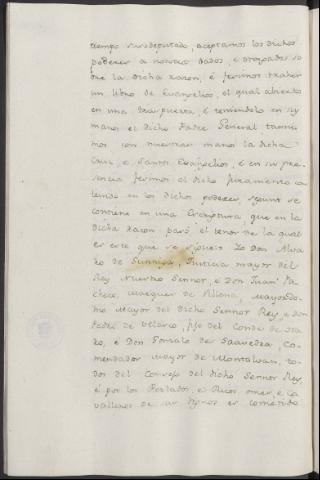 tiempo sus deputados, aceptamos los dichos
poderes a nosotros dados, e otorgados so
bre la dicha razon, é ficimos traher
un libro de Evangelios, el qual abierto
en una puerta, é teniendolo en sus
manos el dicho Padre General tanni
mos con nuestras manos la dicha
Cruz, e Santos Evangelios, é en su pre
sencia ficimos el dicho juramento con
tenido en los dichos poderes, segunt se
contiene en una Escriptura, que en la
dicha razon pasó, el tenor de la qual
es este que se sigue: Yo Don Alva
ro de Sunniga, Justicia mayor del
Rey nuestro Sennor, e Don Juan Pa
checo, Marques de Villena, Mayordo
mo Mayor del dicho Sennor Rey, e don
Pedro de Velasco, fijo del Conde de Ha
ro, é Don Gonzalo de Saavedra, Co
mendador mayor de Montalvan, to
dos del Consejo del dicho Sennor Rey,
é por los Perlados, e Ricos omes, e Ca
valleros de sus Regnos es cometido